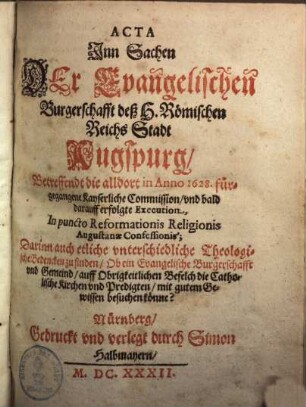 ACTA
Jnn Sachen
DEr Evangelischen
Burgerschafft deß H. Römischen
Reichs Stadt
Augspurg/
Betreffendt die alldort in Anno 1628. für-
gegangene Kayserliche Commission/ vnd bald
darauff erfolgte Execution.,
In puncto Reformationis Religionis
Augustanæ Confessionis;
Darinn auch etliche vnterschiedliche Theologi-
sche Bedencken zu finden/ Ob ein Evangelische Burgerschafft
vnd Gemeind/ auff Obrigkeitlichen Befelch die Catho-
lische Kirchen vnd Predigten/ mit gutem Ge-
wissen besuchen könne?
Nürnberg/
Gedruckt vnd verlegt durch Simon
Halbmayern/
M. DC. XXXII.